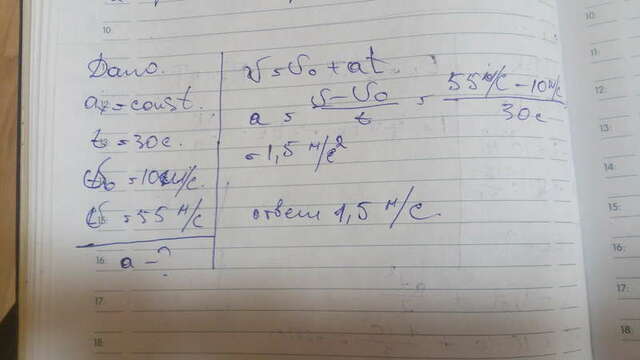 10
Дано.
aₓ = const.
t = 30 с.
υ₀ = 10 м/с.
υ = 55 м/с
a - ?
υ = υ₀ + at
a = (υ - υ₀)/t = (55 м/с - 10 м/с)/30 с
= 1,5 м/с²
ответ 1,5 м/с.
15
16
17:
18:
10:
11:
12:
13:
14:
17:
18: